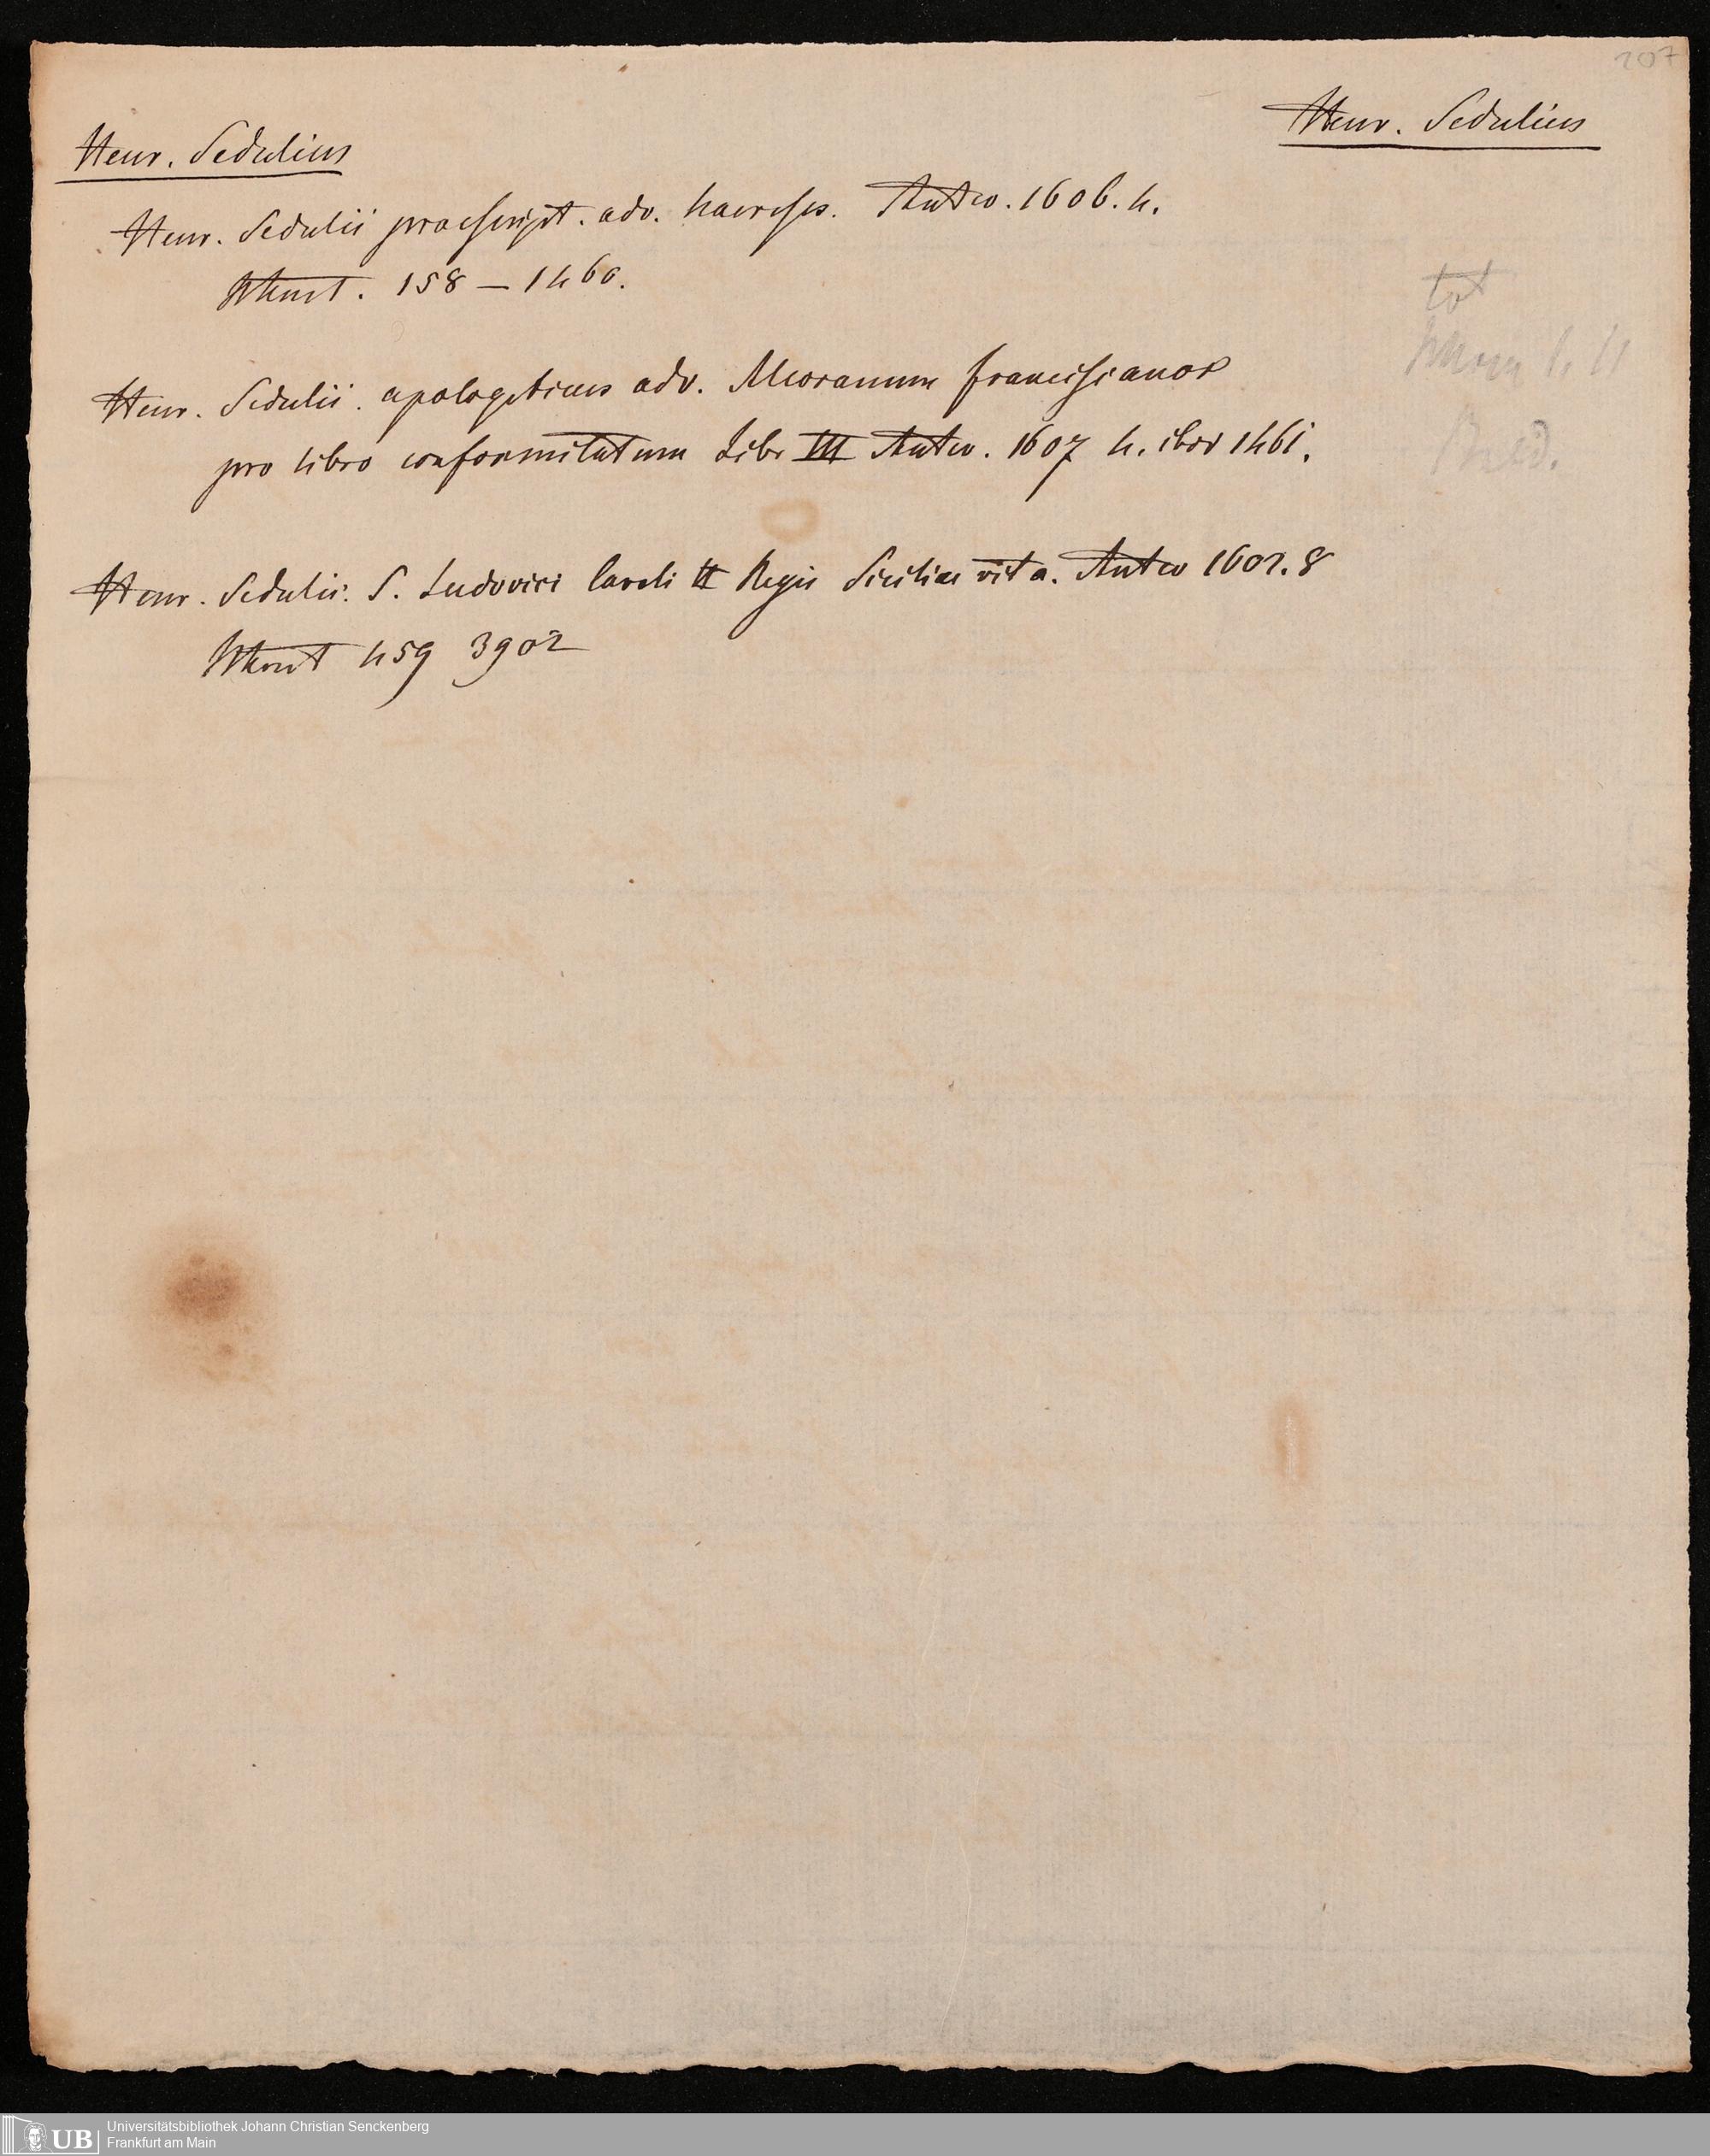 207
Henr. Sedulius
Henr. Sedulius
Henr. Sedulii praescript. adv. haereses. Antw. 1606. 4.
158 – 1460.
Henr. Sedulii. apologeticus adv. Alcoranum franciscanor
pro libro conformitatum Libr III Antw. 1607 4. ibid 1461.
Henr. Sedulii. S. Ludovici Caroli II Regis Siciliae vita. Antw 1602. 8
459 3902
tot
UB Universitätsbibliothek Johann Christian Senckenberg
Frankfurt am Main